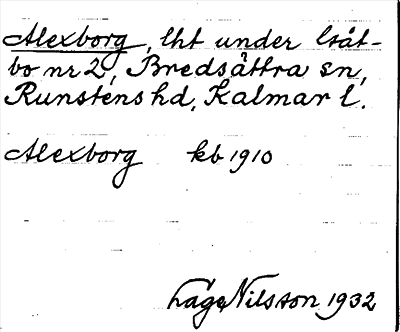 Alexborg, lht under Iståt-
bo nr 2, Bredsättra sn,
Runstens hd, Kalmar l.
Alexborg kb 1910
Lage Nilsson 1932